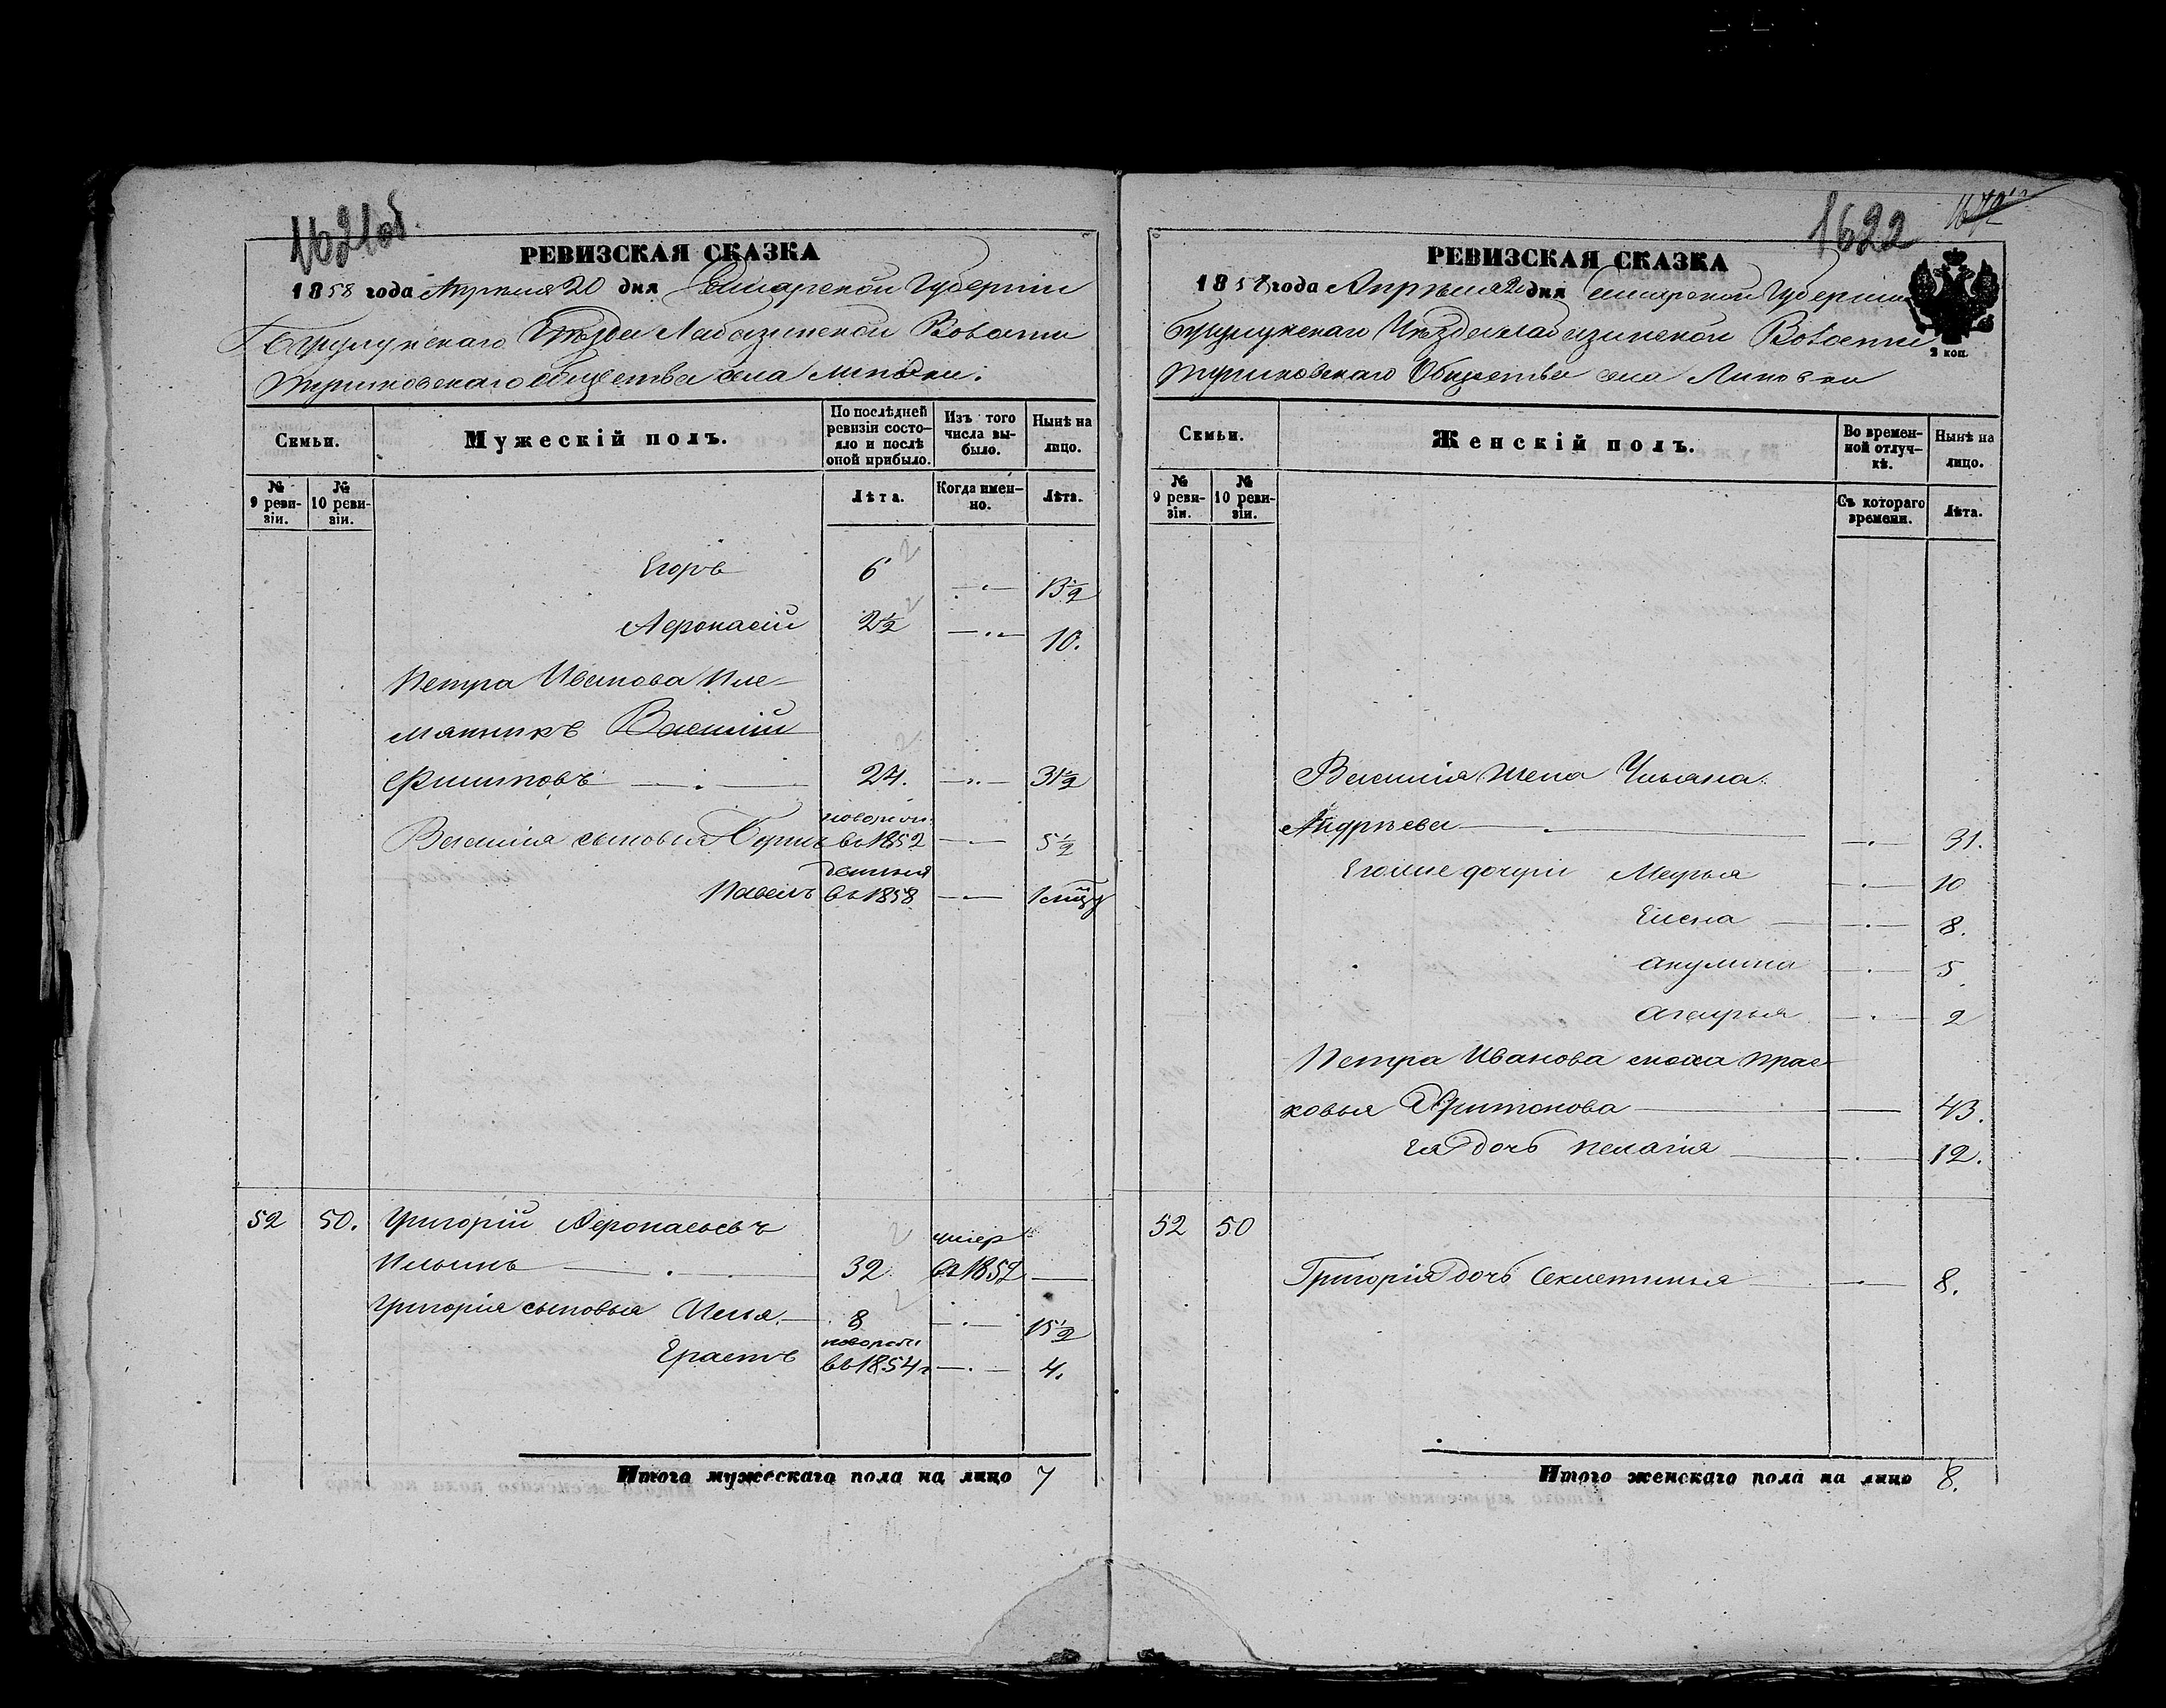 1621 об.
РЕВИЗСКАЯ СКАЗКА
1858 года Апреля 20 дня Самарской Губернии
Бузулукскаго Уѣзда Лабазинской Волости
общества села Липовки.
Семьи.
Мужескій полъ.
По послѣдней ревизіи состояло и послѣ оной прибыло.
Изъ того числа выбыло.
Нынѣ на лицо.
№ 9 ревизіи.
№ 10 ревизіи.
Лѣта.
Когда именно.
Лѣта.
Егоръ 6 13½
Афонасій 2½ 10.
Петра Иванова пле-
мянникъ Василій
Филиповъ 24. 31½
новорож.
Василія сыновья въ 1852 5½
Павелъ въ 1858 1 мѣц
52 50. Григорій Афонасьевъ
умер
Ильинъ 32 въ 1852
Григорія сыновья Илья 8 15½
новорож
Ерастъ въ 1854 г 4.
Итого мужескаго пола на лицо 7
1622
РЕВИЗСКАЯ СКАЗКА
1858 года Апрѣля 20 дня Самарской Губернии
Бузулукскаго Уѣзда Лабазинской Волости
Общества села Липовки
2 коп.
Семьи.
Женскій полъ.
Во временной отлучкѣ.
Нынѣ на лицо.
№ 9 ревизіи.
№ 10 ревизіи.
Съ котораго времени.
Лѣта.
Василія жена Ульяна
Андрѣева 31.
Его же дочери Марья 10
Елена 8.
Акулина 5
2
Петра Иванова сноха Прас-
ковья 43.
Ея дочь Пелагія 12.
52 50
Григорія дочь Секлетинья 8.
Итого женскаго пола на лицо 8.